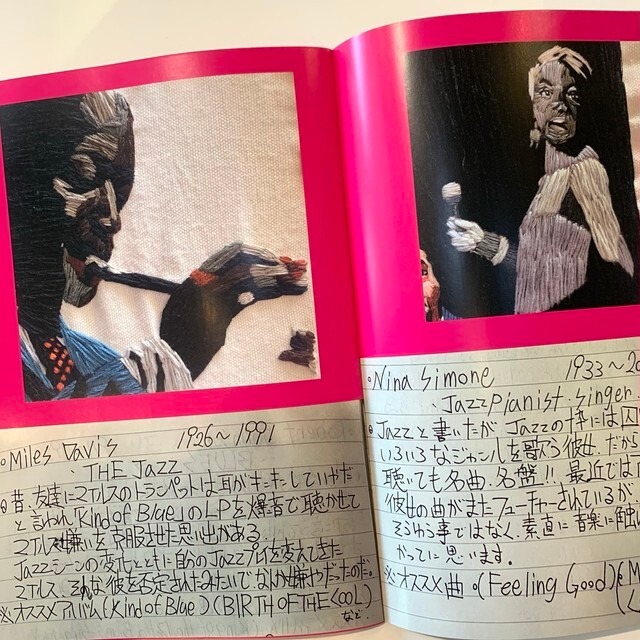 Miles Davis 1926〜1991
・THE Jazz
昔、友達にマイルスのトランペットは耳がキーキーしていやだ
と言われ「Kind of Blue」のLPを爆音で聴かせて
マイルス嫌いを克服させた思い出がある。
Jazzシーンの変化とともに自分のJazzプレイを変えてきた
マイルス、そんな彼を否定されたみたいで、なんか嫌やだったのだ。
※オススメアルバム(Kind of Blue)(BIRTH OF THE COOL)
など、
Nina Simone 1933〜20
・Jazz pianist・singer
Jazzと書いたが Jazzの枠には囚
いろいろなジャンルを歌う彼女、だから
聴いても名曲、名盤!!、最近では
彼女の曲がまたフューチャーされているが
そうゆう事ではなく、素直に音楽に触
かってに思います。
※オススメ曲。(Feeling Good)(M